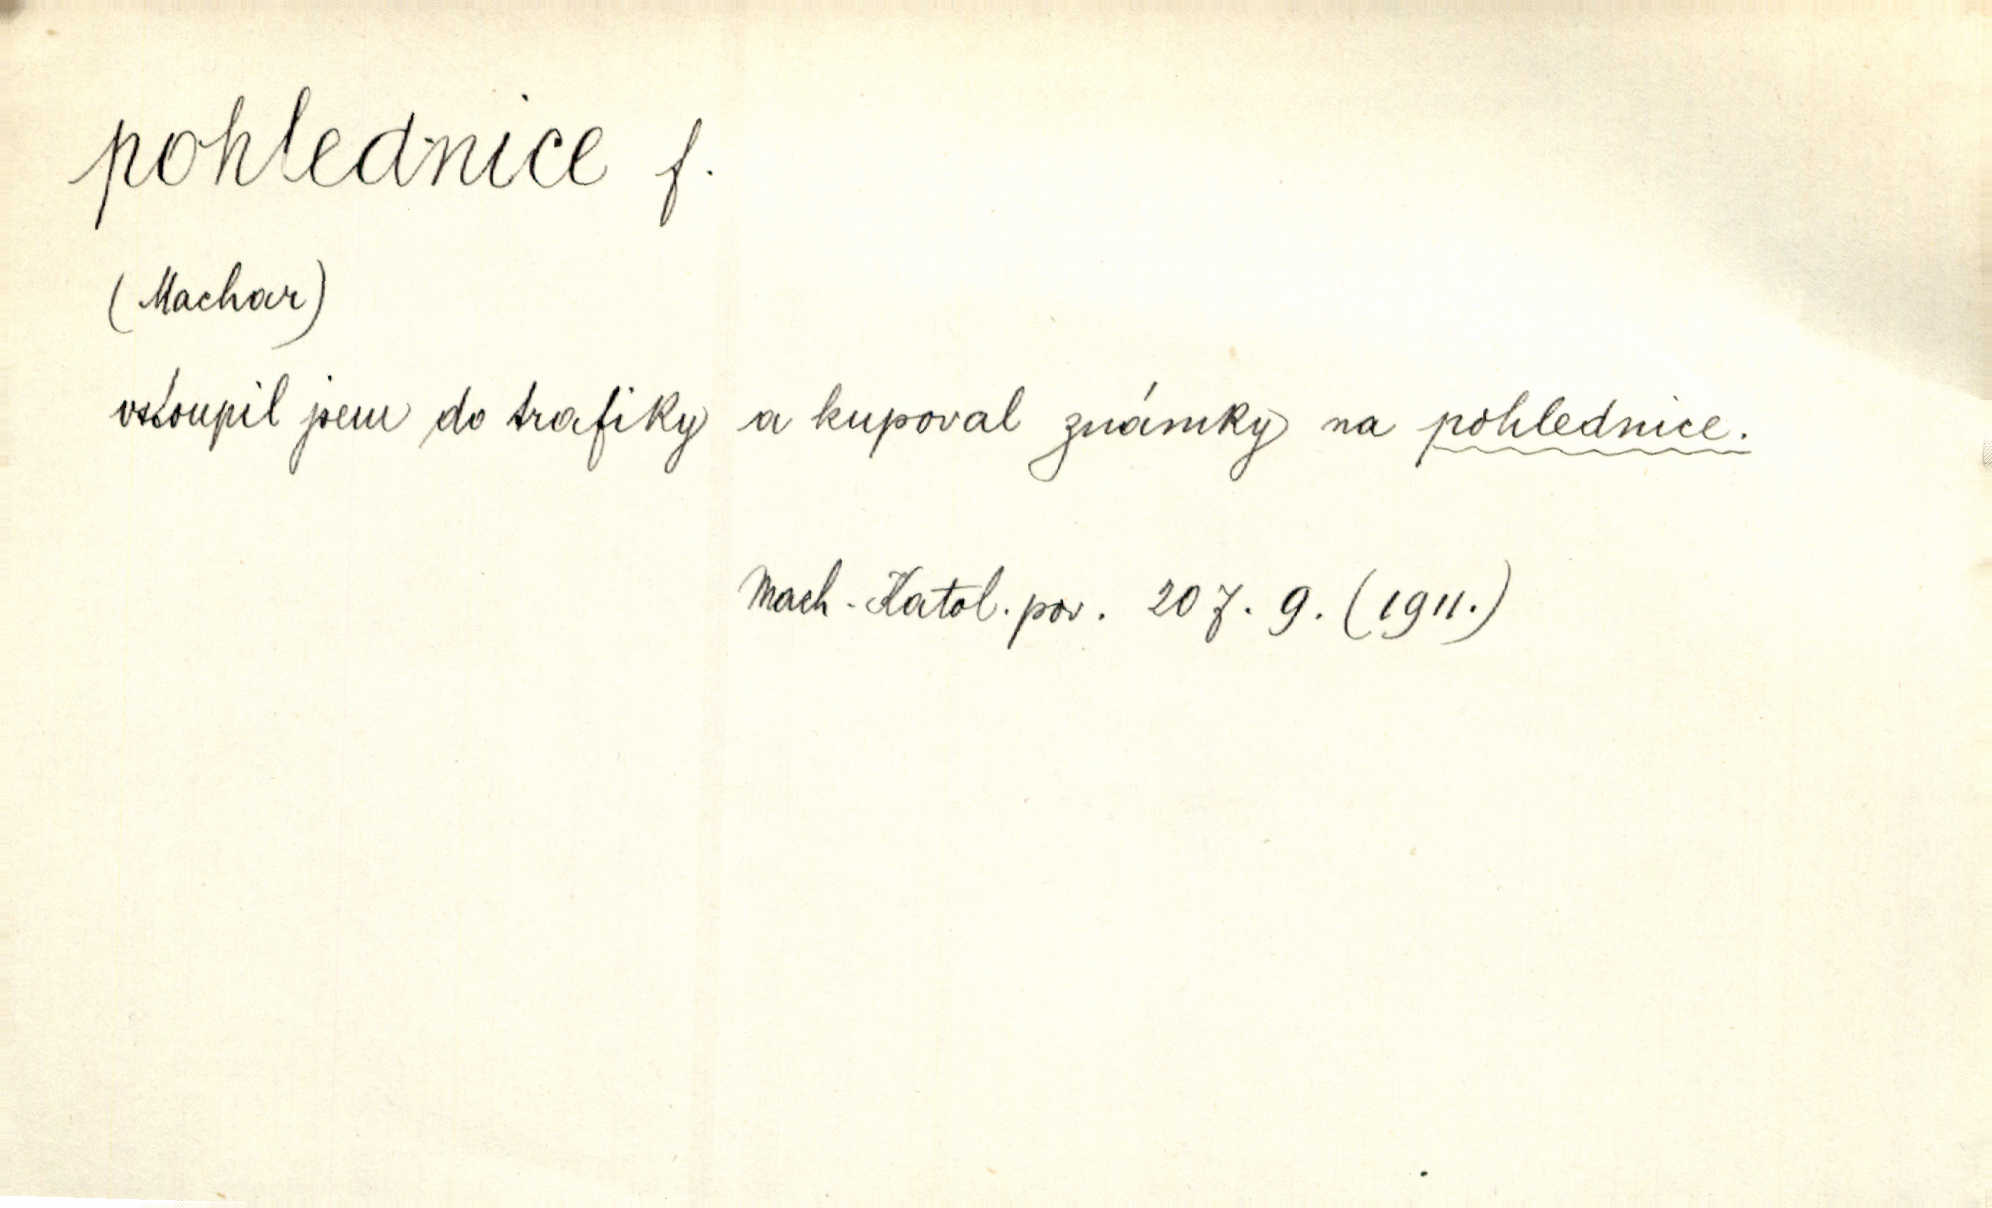 pohlednice f.
(Machar)
vstoupil jsem do trafiky a kupoval známky na pohlednice.
Mach. Katol. pov. 207. 9. (1911.)